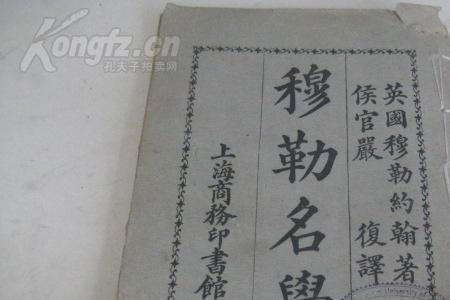 Kongfz.cn
孔夫子拍卖网
英國穆勒約翰著
侯官嚴 復譯
穆勒名學
上海商務印書館